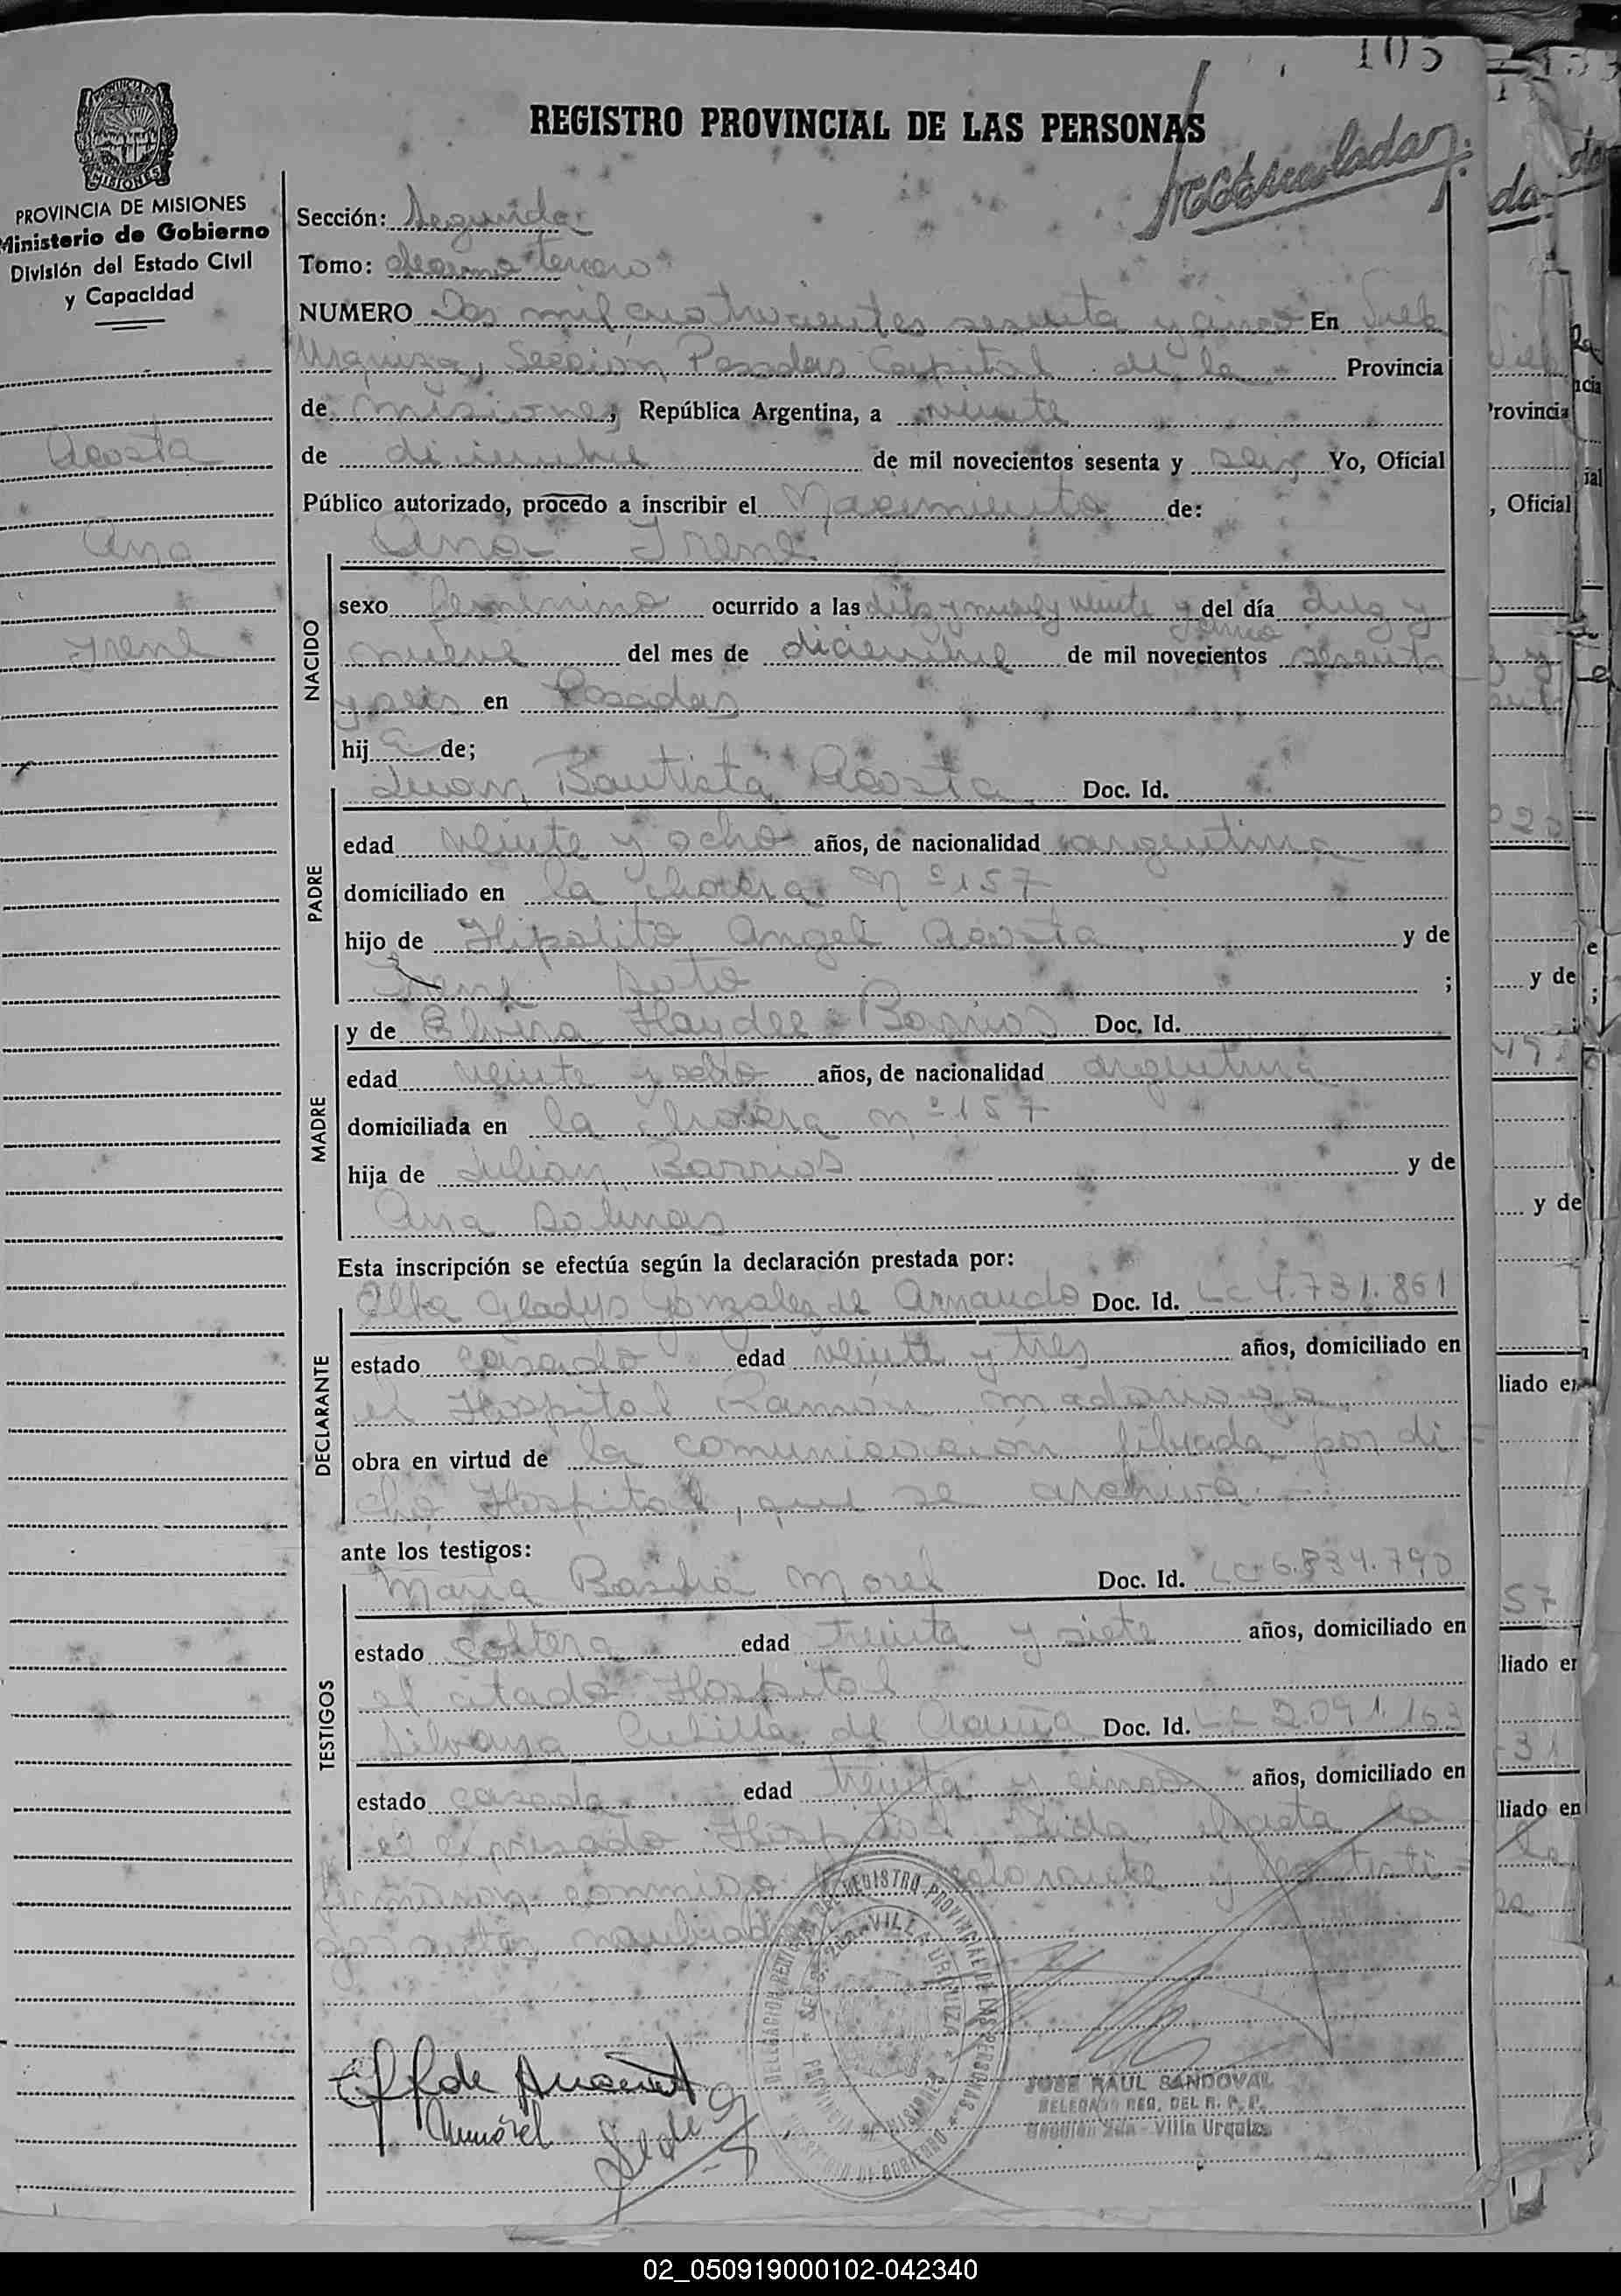 103
REGISTRO PROVINCIAL DE LAS PERSONAS
PROVINCIA DE MISIONES
Ministerio de Gobierno
División del Estado Civil
y Capacidad
Acosta
Ana
Irene
Sección: Segunda
Tomo: decimo tercero
NUMERO Dos mil cuatrocientos sesenta y cinco En Villa
Urquiza, Sección Posadas Capital de la Provincia
de misiones, República Argentina, a veinte
de diciembre de mil novecientos sesenta y seis Yo, Oficial
Público autorizado, procedo a inscribir el Nacimiento de:
Ana Irene
NACIDO
sexo femenino ocurrido a las diez y nueve y veinte y cinco del día diez y
nueve del mes de diciembre de mil novecientos sesenta
y seis en Posadas
hija de;
Juan Bautista Acosta Doc. Id.
PADRE
edad veinte y ocho años, de nacionalidad argentina
domiciliado en la chacra Nº 157
hijo de Hipolito Angel Acosta y de
Irene Soto ;
y de Elvira Haydee Barrios Doc. Id.
MADRE
edad veinte y ocho años, de nacionalidad argentina
domiciliada en la chacra nº 157
hija de Julian Barrios y de
Ana Solinas
Esta inscripción se efectúa según la declaración prestada por:
Elba Gladys Gonzalez de Arnaudo Doc. Id. LC 4.731.861
DECLARANTE
estado casado edad veinte y tres años, domiciliado en
el Hospital Ramón madariaga
obra en virtud de la comunicación librada por di-
cho Hospital, que se archiva.-
ante los testigos:
Maria Morel Doc. Id. LC 6.834.790
TESTIGOS
estado soltera edad treinta y siete años, domiciliado en
el citado Hospital
Silvana de Acuña Doc. Id. LC 2.091.163
estado casada edad treinta y cinco años, domiciliado en
el expresado Hospital Leida el acta la
firmaron conmigo declarante y los testi-
gos
JOSE RAUL SANDOVAL
DELEGADO REG. DEL R. P. P.
Sección 2da - Villa Urquiza
02_050919000102-042340